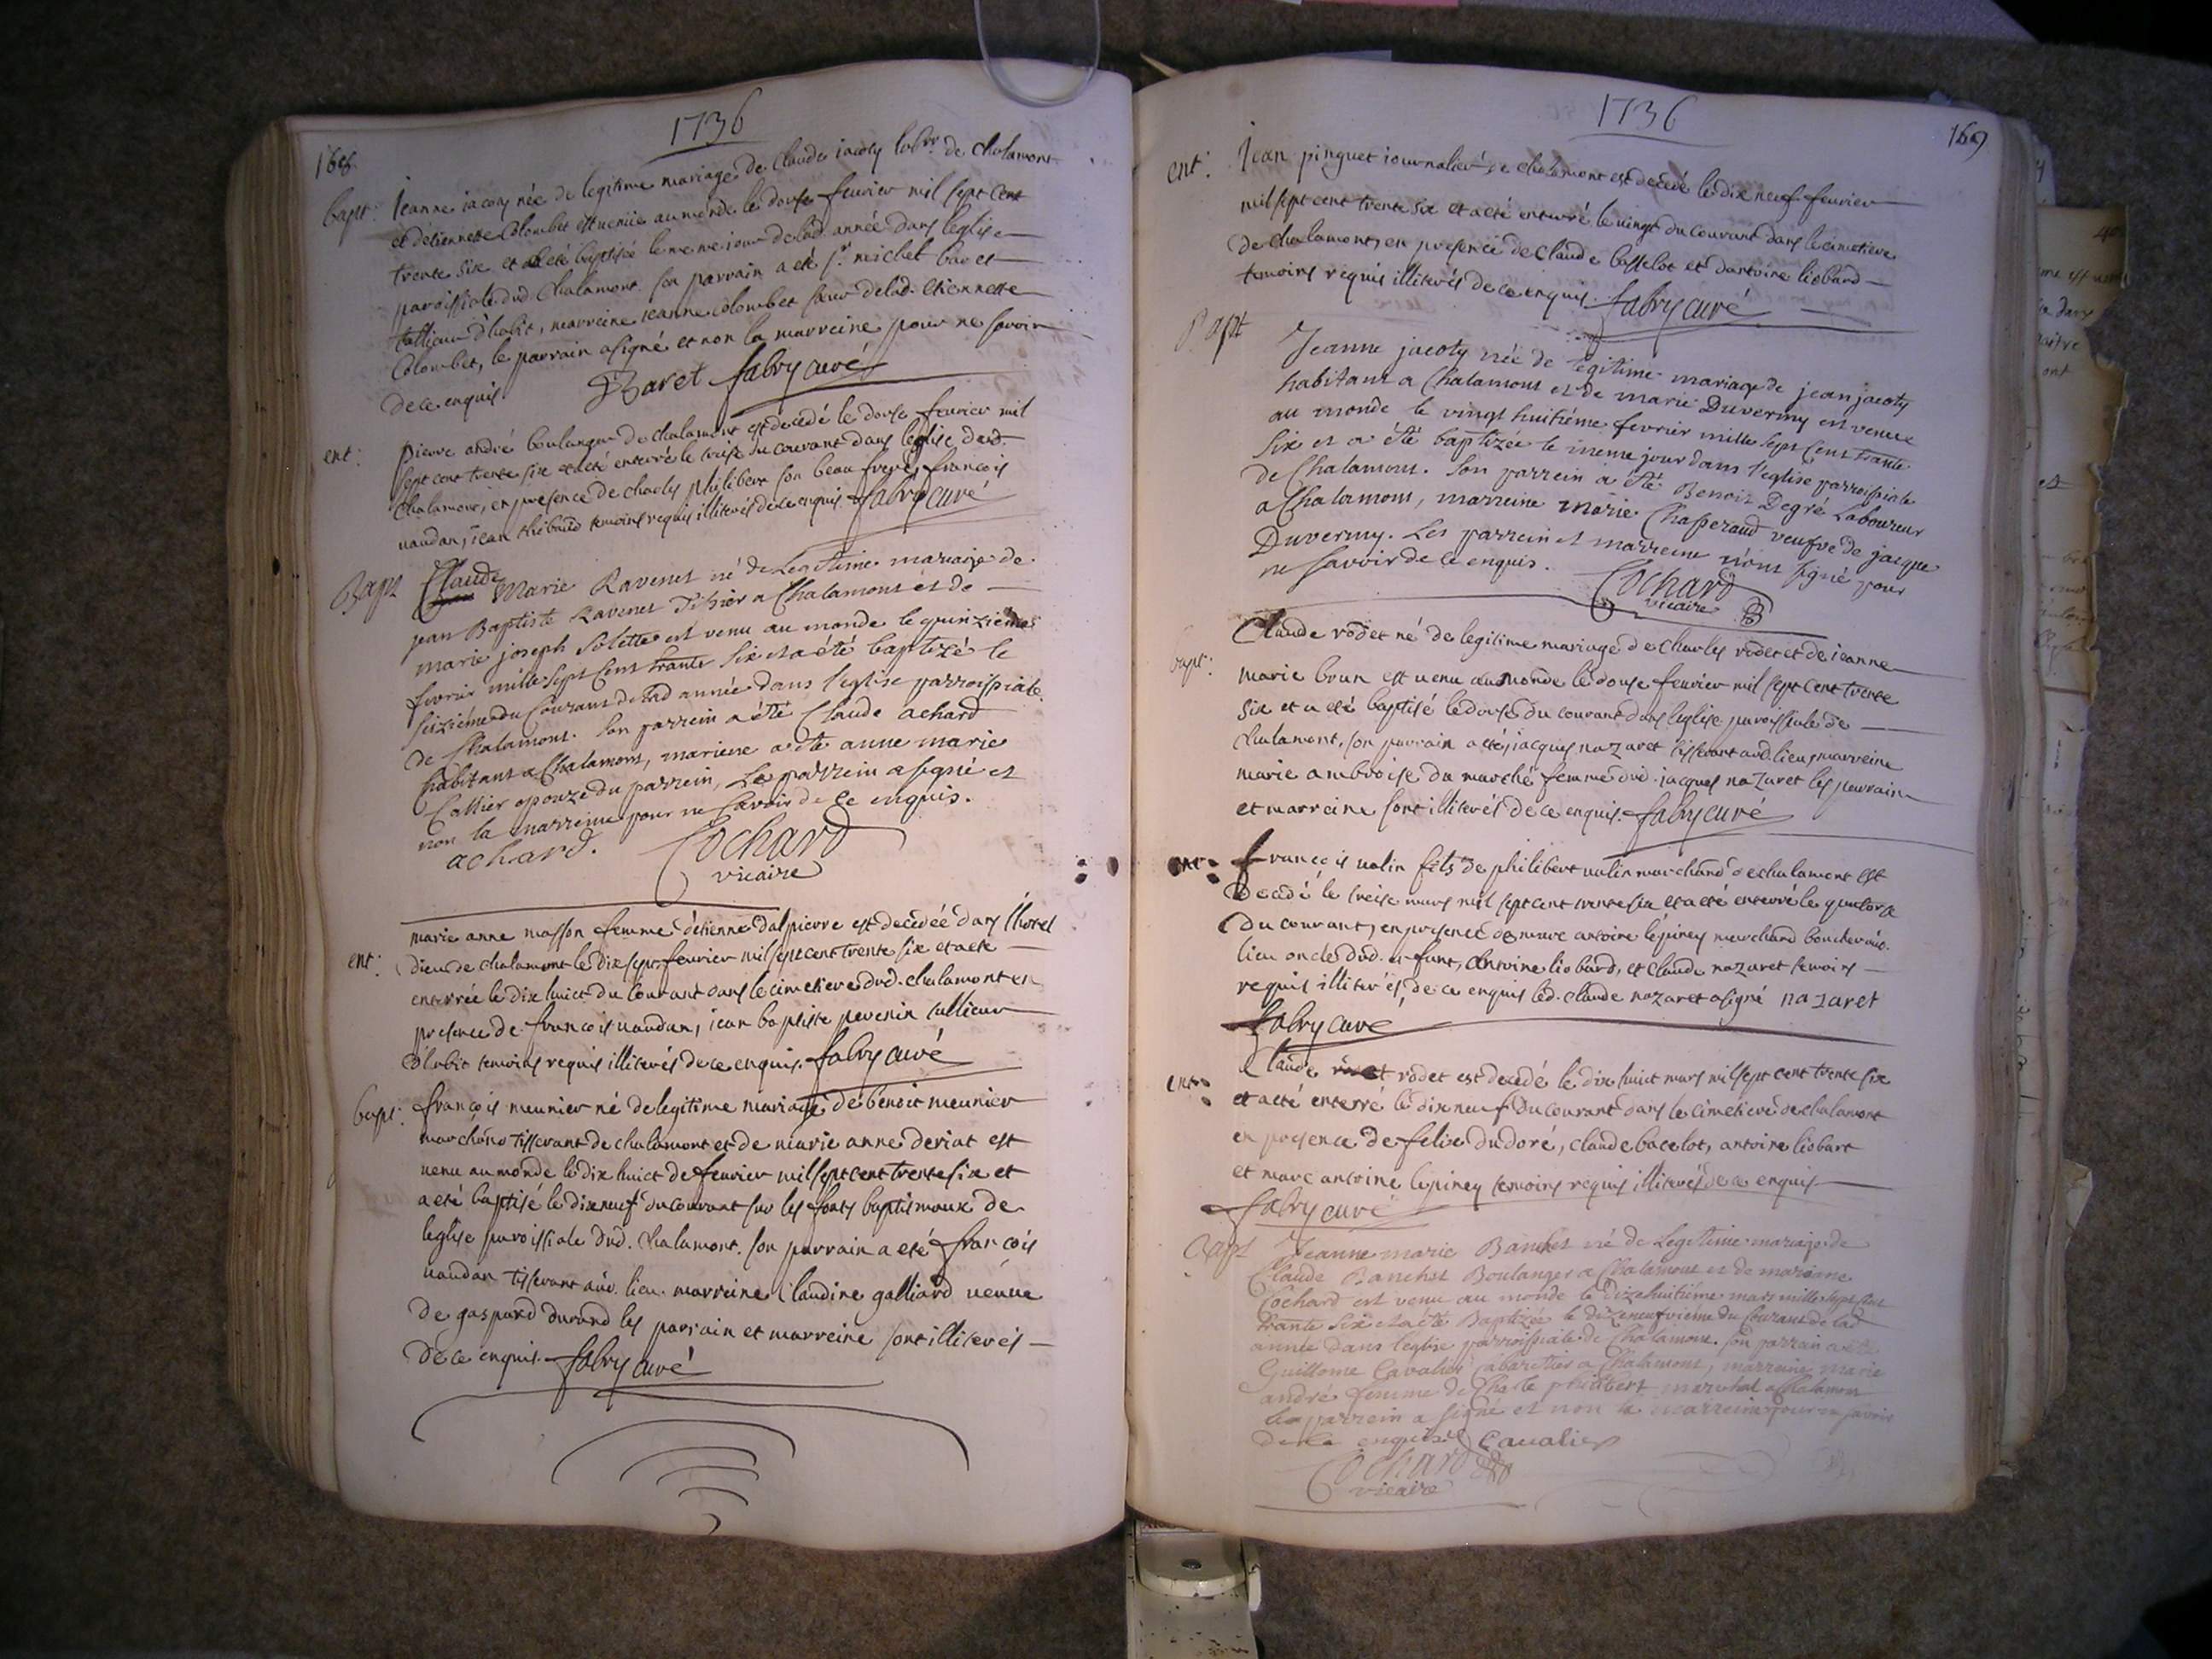 1736
168
bapt: Jeanne iacoty née de legitime mariage de Claude iacoty labr. de chalamont
et détiennette Colombet est venüe au monde le douse feurier mil sept cent
trente six et a été baptisée le meme iour de lad. année dans leglise
paroissiale dud. Chalamont. son parrain a eté sr. michel baret
tallieur d'habit, marreine ieanne colombet soeur de lad. etiennette
Colombet, le parrain a signé et non la marreine pour ne savoir
de ce enquis Baret fabry curé
ent: pierre andré boulanger de chalamont est decedé le douse feurier mil
sept cent trente six et a eté enterré le treise du courant dans leglise dud.
Chalamont, en presence de charles philibert son beau frere, francois
uaudan, iean thibaud temoins requis illiterés de ce enquis. fabry curé
Bapt Claude Marie Ravenet né de Legitime mariage de
jean Baptiste Ravenet Tissier a Chalamont et de
marie joseph Solette est venu au monde le quinzieme
fevrier mille sept Cent trante Six et a été baptizé le
seiziéme du Courant de lad année dans l'eglise parroissiale
de Chalamont. Son parrein a été Claude achard
habitant a Chalamont, mareine a été anne marie
Callier epouze du parrein, Le parrein a signé et
non la marreine pour ne scavoir de Ce enquis.
achard. Cochard
vicaire
marie anne masson femme détienne dalpierre est decedée dans lhotel
ent: dieu de chalamont le dix sept feurier mil sept cent trente six et a eté
enterrée le dix huict du Courant dans le cimetiere dud. chalamont en
presence de francois uaudan, iean baptiste peuenin tallieur
d'habit temoins requis illiterés de ce enquis. fabry curé
bapt: francois meunier né de legitime mariage de benoit meunier
marchand tisserant de chalamont et de marie anne deriat est
uenu au monde le dix huict de feurier mil sept cent trente six et
a eté baptisé le dixneuf du courant sur les fonts baptismaux de
leglise paroissiale dud. Chalamont. son parrain a eté francois
uaudan tisserant aud. lieu. marreine Claudine galliard ueuue
de gaspard durand les parrain et marreine sont illiterés
de ce enquis. fabry curé
1736
169
ent: Jean pinguet iournalier de chalamont est decedé le dix neuf feurier
mil sept cent trente six et a eté enterré le uingt du courant dans le cimetiere
de chalamont, en presence de Claude basselot et dantoine liobard
temoins requis illiterés de ce enquis. fabry curé
Bapt Jeanne jacoty née de legitime mariage de jean jacoty
habitant a Chalamont et de marie Duvermy est venue
au monde le vingt huitiéme fevrier mille sept Cent trante
Six et a été baptizée le meme jour dans l'eglise parroissiale
de Chalamont. Son parrein a été Benoit Degré Laboureur
a Chalamont, marreine marie Chasperaud veufve de jacque
Duvermy. Les parrein et marreine n'ont signé pour
ne savoir de Ce enquis. Cochard
vicaire
Claude rodet né de legitime mariage de Charles rodet et de ieanne
bapt: marie brun est uenu au monde le douse feurier mil sept cent trente
six et a eté baptisé le douse du courant dans leglise paroissiale de
Chalamont. son parrain a eté jacques nazaret tisserant aud. lieu, marreine
marie ambroise du marché femme dud. jacques nazaret les parrain
et marreine sont illiterés de ce enquis. fabry curé
ent: francois ualin fils de philibert ualin marchand de chalamont est
decedé le treise mars mil sept cent trente six et a eté enterré le quatorse
du courant, en presence de marc antoine lépiney marchand boucher aud.
lieu oncle dud. enfant, antoine liobard, et claude nazaret temoins
requis illiterés, de ce enquis led. claude nazaret a signé nazaret
fabry curé
Claude rodet est decedé le dix huict mars mil sept cent trente six
ent: et a eté enterré le dix neuf du courant dans le cimetiere de chalamont
en presence de felix dudoré, claude bacelot, antoine liobart
et marc antoine lepiney temoins requis illiterés de ce enquis
fabry curé
Bapt Jeanne marie Banchet né de Legitime mariage de
Claude Banchet Boulanger a Chalamont et de mariane
Cochard est venu au monde le dizehuitiéme mars mille sept Cent
trante Six et a été Baptizée le dizeneufviéme du Courant de lad
année dans leglise parroissiale de Chalamont. son parrain a été
Guillome Cavalier Cabaretier a Chalamont, marraine marie
andré femme de Charle philibert marechal a Chalamont
Le parrein a signé et non la marreine pour ne savoir
de Ce enquis Cavalier
Cochard
vicaire